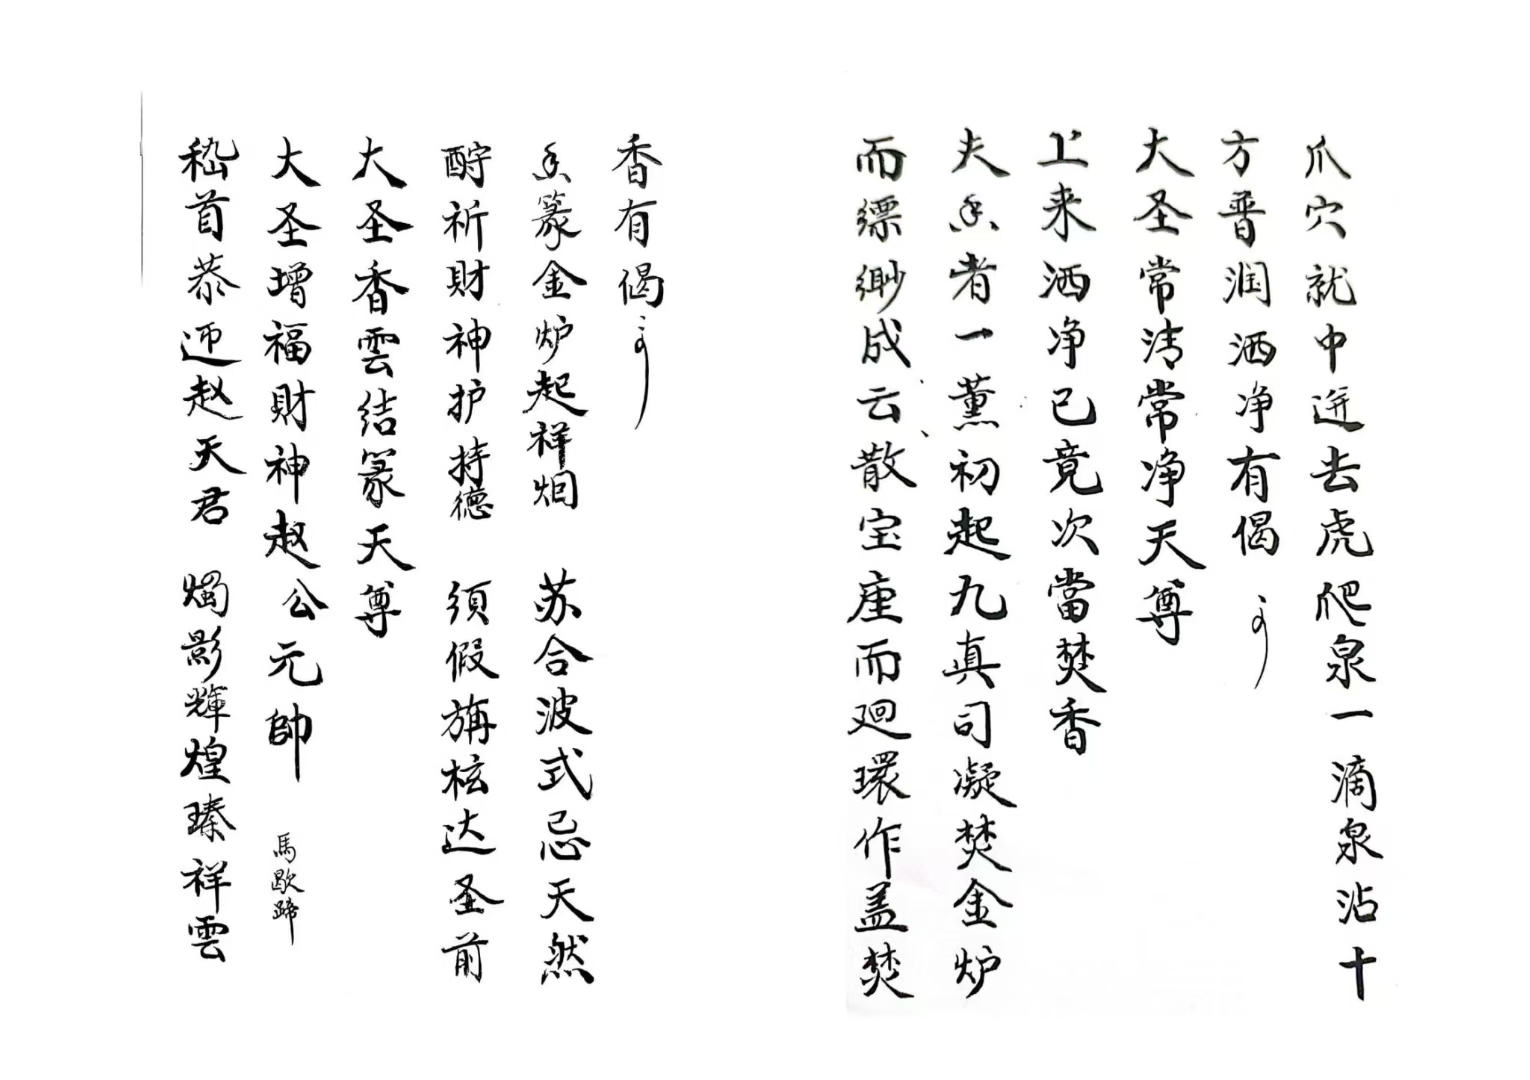 爪穴就中迸去虎爬泉一滴泉沾十
方普润洒净有偈
大圣常清常净天尊
上来洒净已竟次當焚香
夫香者一薰初起九真司凝焚金炉
而缥缈成云散宝座而廻環作盖焚
香有偈
香篆金炉起祥烟 苏合波式忌天然
酧祈財神护持德 须假旃桧达圣前
大圣香雲结篆天尊
大圣增福財神赵公元帥 馬歇蹄
嵇首恭迊赵天君 燭影輝煌臻祥雲